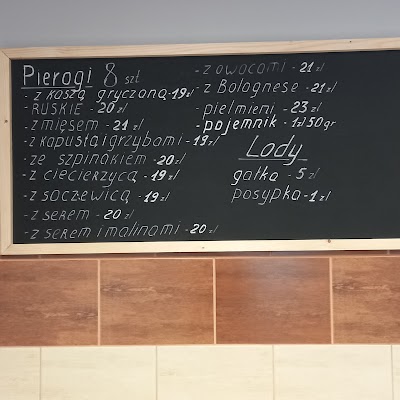 Pierogi 8 szt
- z kaszą gryczaną - 19 zł
- RUSKIE - 20 zł
- z mięsem - 21 zł
- z kapustą i grzybami - 19 zł
- ze szpinakiem - 20 zł
- z ciecierzycą - 19 zł
- z soczewicą - 19 zł
- z serem - 20 zł
- z serem i malinami - 20 zł
- z owocami - 21 zł
- z Bolognese - 21 zł
- pielmieni - 23 zł
- pojemnik - 1 zł 50 gr
Lody
gałka - 5 zł
posypka - 1 zł